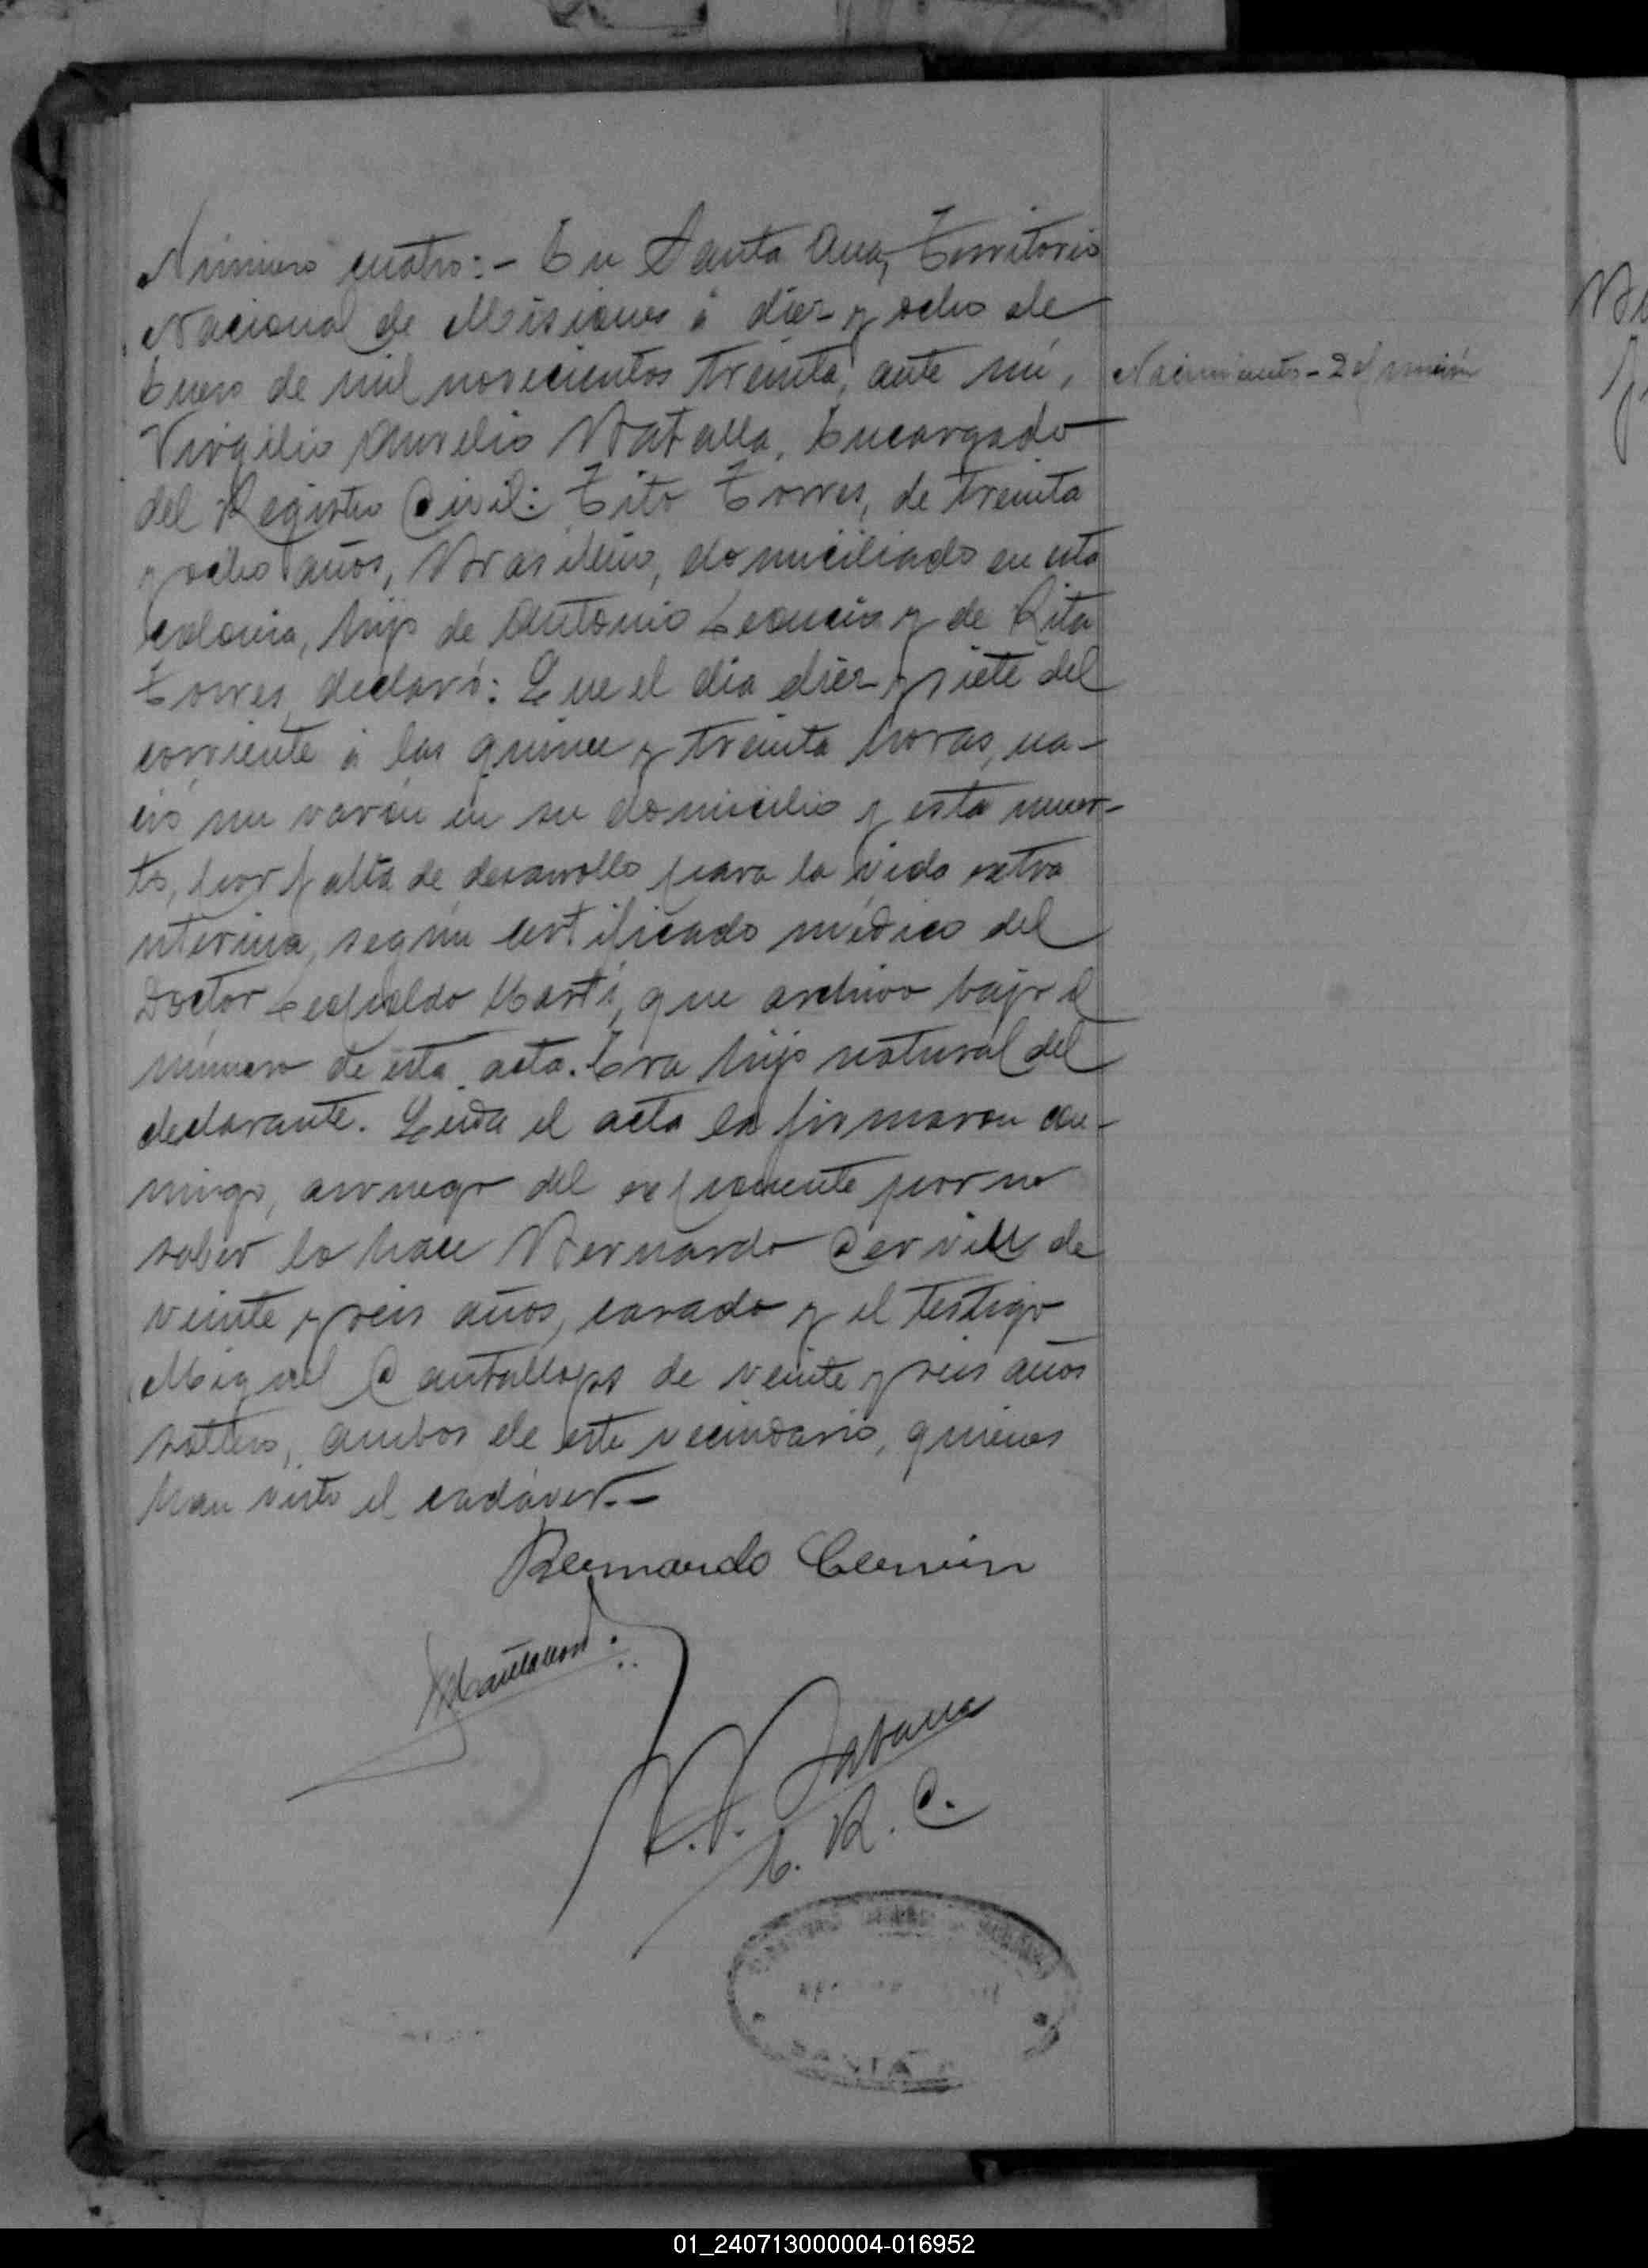 Número cuatro:- En Santa Ana, Territorio
Nacional de Misiones á diez y ocho de
Enero de mil novecientos treinta, ante mí,
Virgilio Aurelio Batalla, Encargado
del Registro Civil: Tito Torres, de treinta
y ocho años, Brasilero, domiciliado en esta
colonia, hijo de Antonio Leoncio y de Rita
Torres, declaró: Que el dia diez y siete del
corriente á las quince y treinta horas, na-
ció un varón en su domicilio y esta muer-
to, por falta de desarrollo para la vida extra
uterina, segun certificado médico del
Doctor Leopoldo Marti, que archivo bajo el
número de esta acta. Era hijo natural del
declarante. Leida el acta la firmaron con-
migo, a ruego del exponente por no
saber lo hace Bernardo de
veinte y seis años, casado y el testigo
Miguel Cantallops de veinte y seis años
soltero, ambos de este vecindario, quienes
han visto el cadáver.-
Nacimiento-Defunción
Bernardo
E. R. C.
01_240713000004-016952